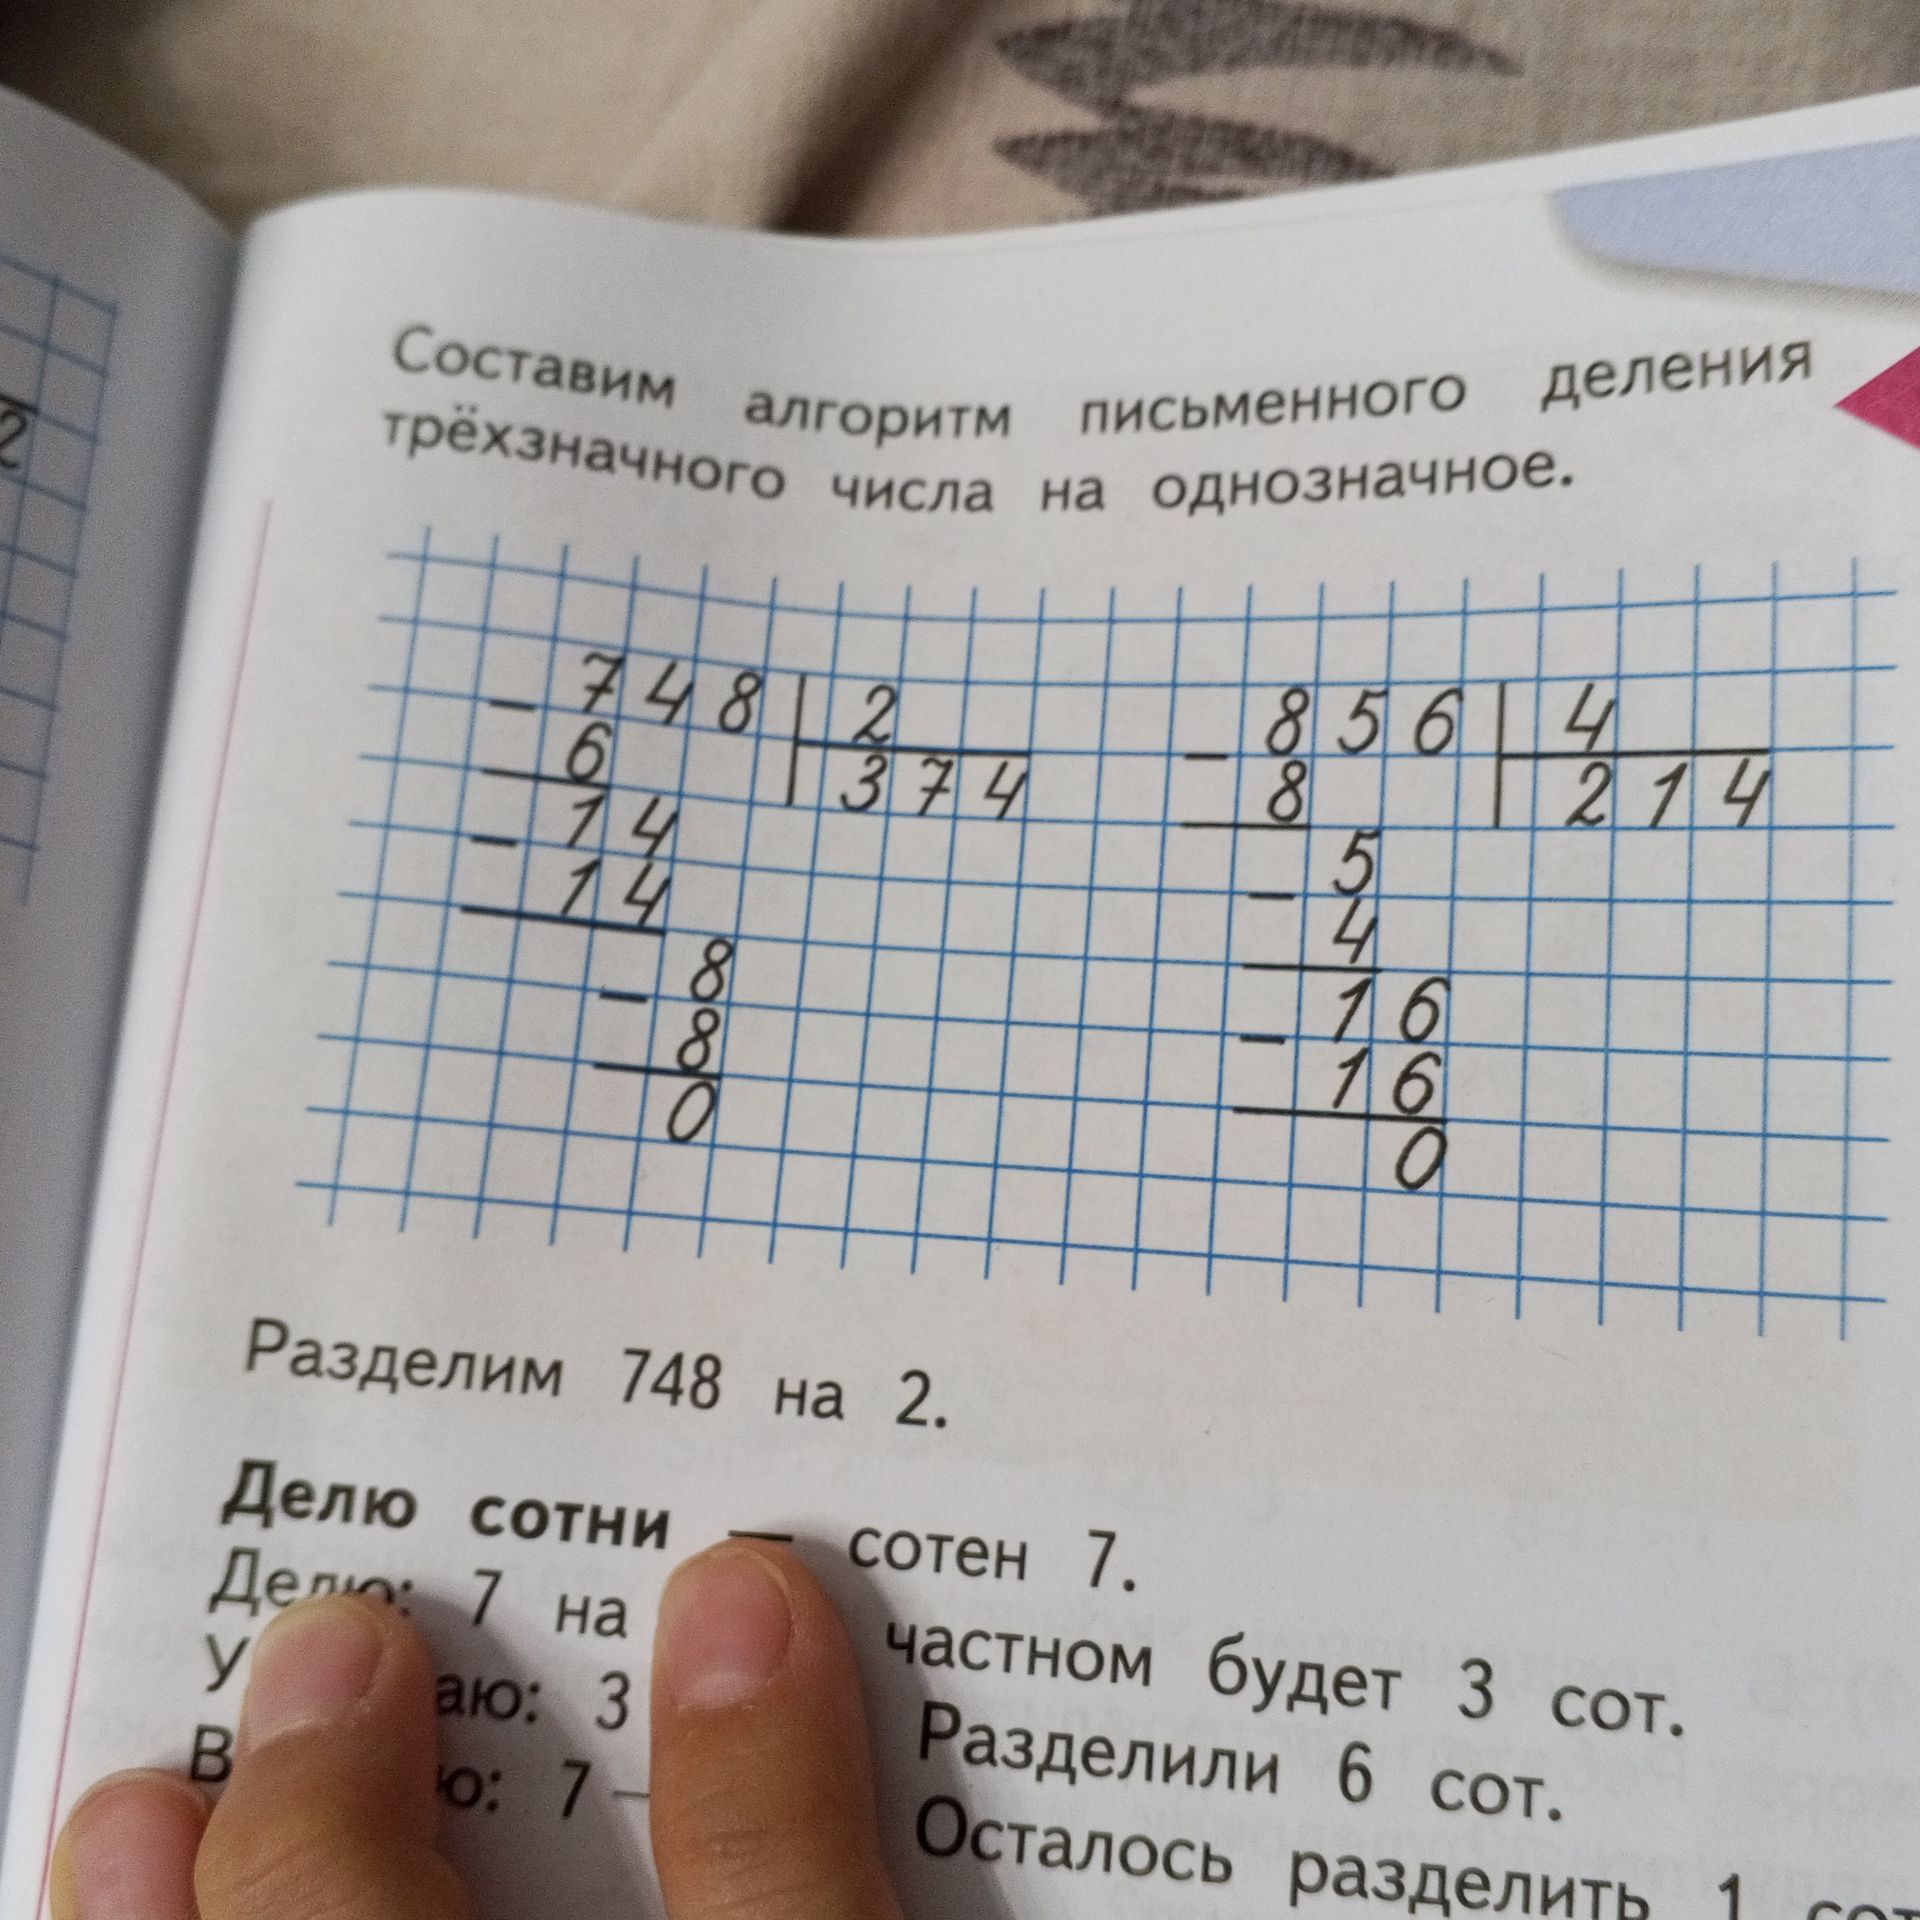 2
Составим алгоритм письменного деления
трёхзначного числа на однозначное.
– 748 | 2
6 | 374
– 14
14
– 8
8
0
– 856 | 4
8 | 214
– 5
4
– 16
16
0
Разделим 748 на 2.
Делю сотни — сотен 7.
Делю: 7 на частном будет 3 сот.
3 Разделили 6 сот.
7 – Осталось разделить 1